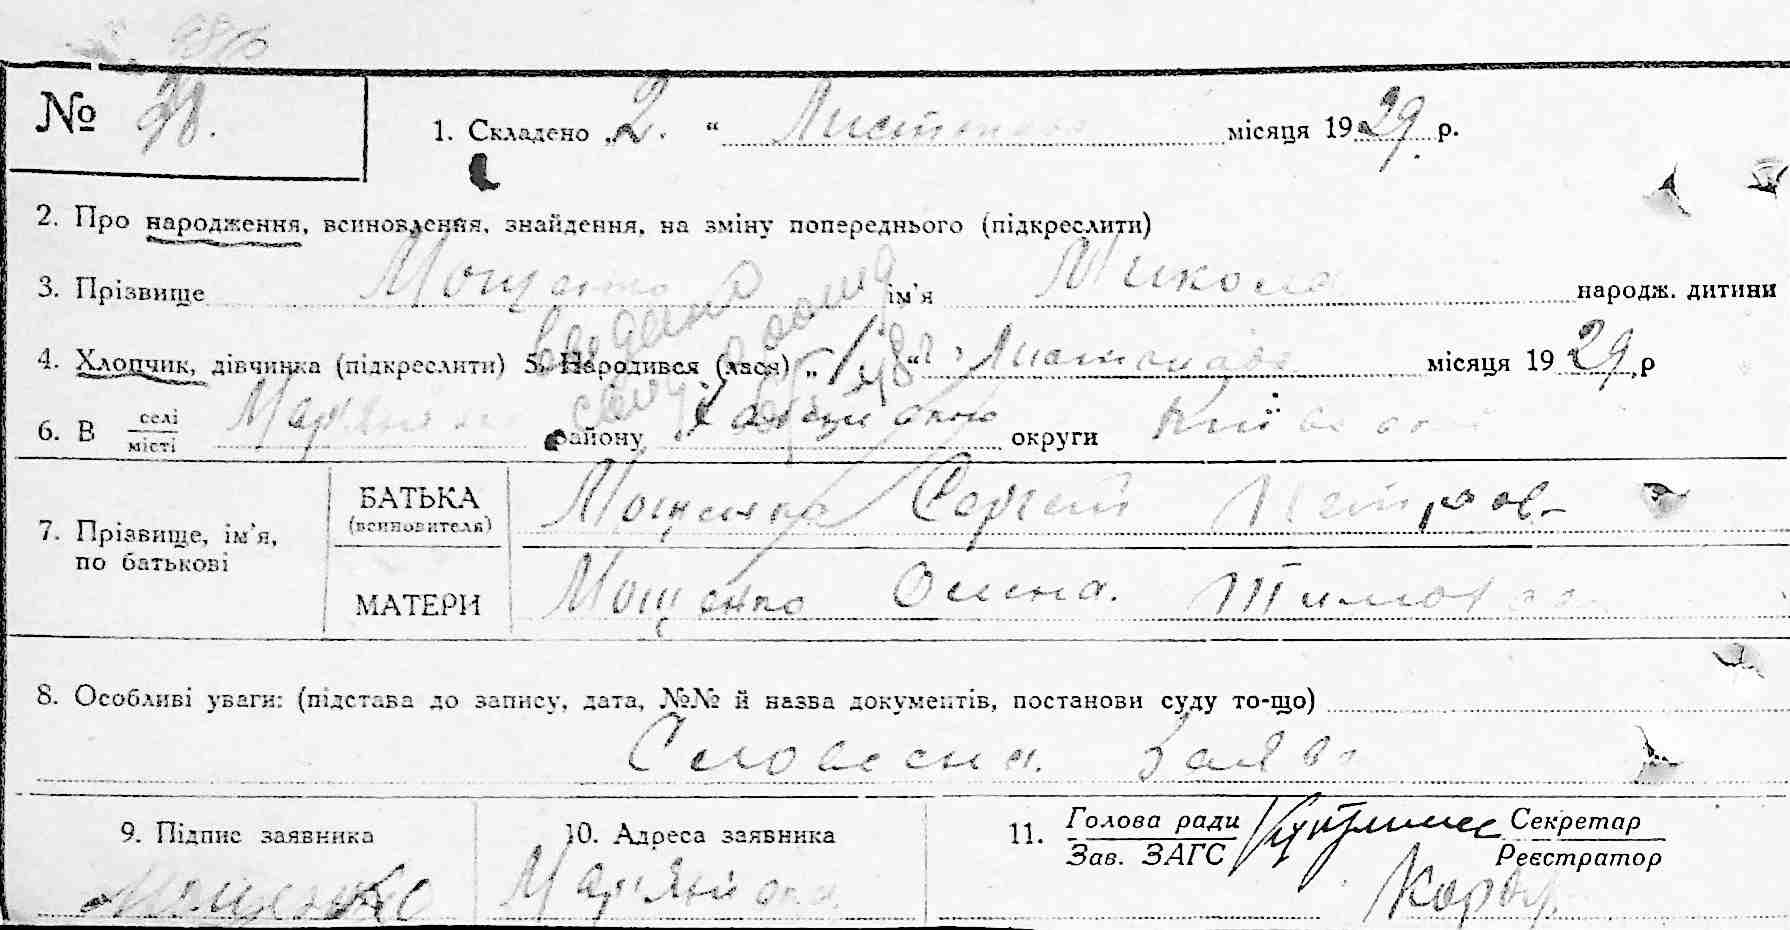 № 28.
1. Складено „2.“ Листопада місяця 1929 р.
2. Про народження, всиновлення, знайдення, на зміну попереднього (підкреслити)
3. Прізвище Мощенко ім'я Микола народж. дитини
4. Хлопчик, дівчинка (підкреслити) 5. Народився (лася) „1“ Листопада місяця 1929 р
6. В селі/місті Мар'янівка району округи Київської
7. Прізвище, ім'я, по батькові
БАТЬКА (всиновителя) Мощенко Сергій Петров.
МАТЕРИ Мощенко Олена.
8. Особливі уваги: (підстава до запису, дата, №№ й назва документів, постанови суду то-що)
Словесна заява
9. Підпис заявника 10. Адреса заявника 11. Голова ради Секретар
Зав. ЗАГС Реєстратор
Мощенко Мар'янівка